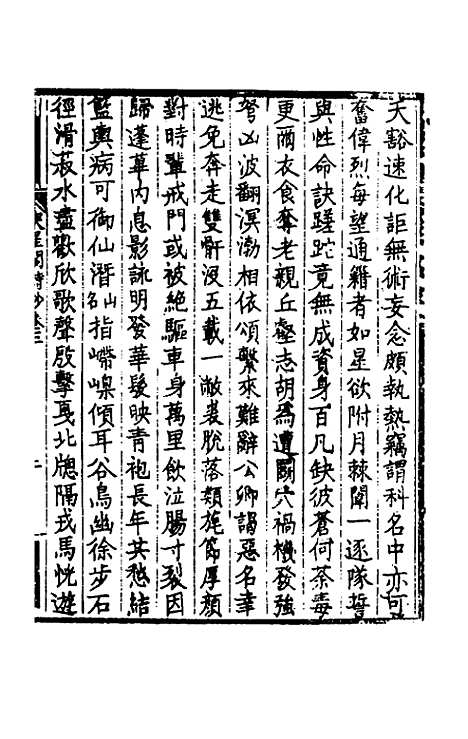 天豁速化詎無術妄念頗執熱竊謂科名中亦可
奮偉烈每望通籍者如星欲附月棘闈一逐隊誓
與性命訣蹉跎竟無成資身百凡缺彼蒼何荼毒
更酉衣食奪老親丘壑志胡為遭鬭穴禍機發強
弩凶波翻溟渤相依頌繫來難辭公卿謁惡名幸
逃免奔走雙骭沒五載一敝裘脫落類旄節厚顏
對時輩戒門或被絕驅車身萬里飲泣腸寸裂因
歸蓬蓽內息影詠明發華髮映青袍長年其愁結
籃輿病可御仙潛名山指嵽嵲傾耳谷鳥幽徐步石
徑滑菽水盡歡欣歌聲殷擊戛北牕隔戎馬恍遊